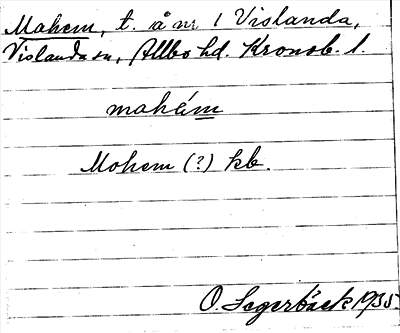 Mahem, t. å nr 1 Vislanda,
Vislanda sn, Allbo hd. Kronob. l.
mahém
Mohem (?) kb.
O. Segerbäck 1935.